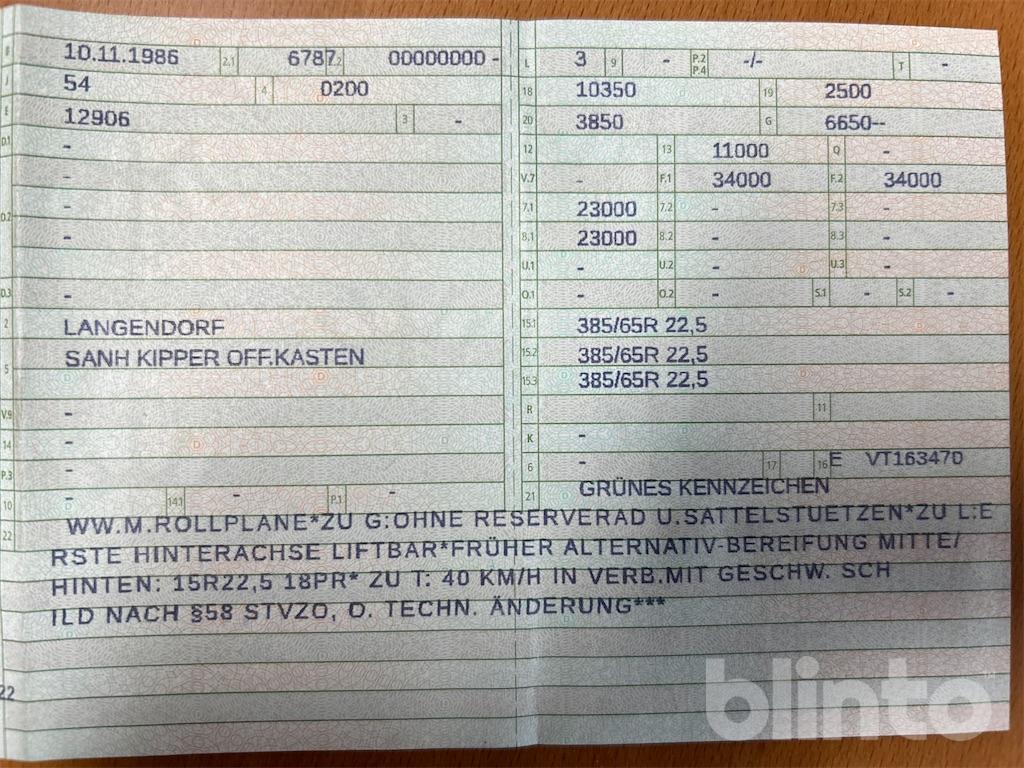 B 10.11.1986 2.1 6787 2.2 00000000 -
J 54 4 0200
E 12906 3 -
D.1 -
-
D.2 -
-
D.3 -
2 LANGENDORF
5 SANH KIPPER OFF.KASTEN
V.9 -
14 -
P.3 -
10 - 14.1 - P.1 -
L 3 9 - P.2 P.4 -/- T -
18 10350 19 2500
20 3850 G 6650--
12 13 11000 Q -
V.7 - F.1 34000 F.2 34000
7.1 23000 7.2 - 7.3 -
8.1 23000 8.2 - 8.3 -
U.1 - U.2 - U.3 -
O.1 - O.2 - S.1 - S.2 -
15.1 385/65R 22,5
15.2 385/65R 22,5
15.3 385/65R 22,5
R 11
K -
6 - 17 16 E VT163470
21 GRÜNES KENNZEICHEN
22 WW.M.ROLLPLANE*ZU G:OHNE RESERVERAD U.SATTELSTUETZEN*ZU L:E
RSTE HINTERACHSE LIFTBAR*FRÜHER ALTERNATIV-BEREIFUNG MITTE/
HINTEN: 15R22,5 18PR* ZU T: 40 KM/H IN VERB.MIT GESCHW. SCH
ILD NACH §58 STVZO, O. TECHN. ÄNDERUNG***
22
blinto